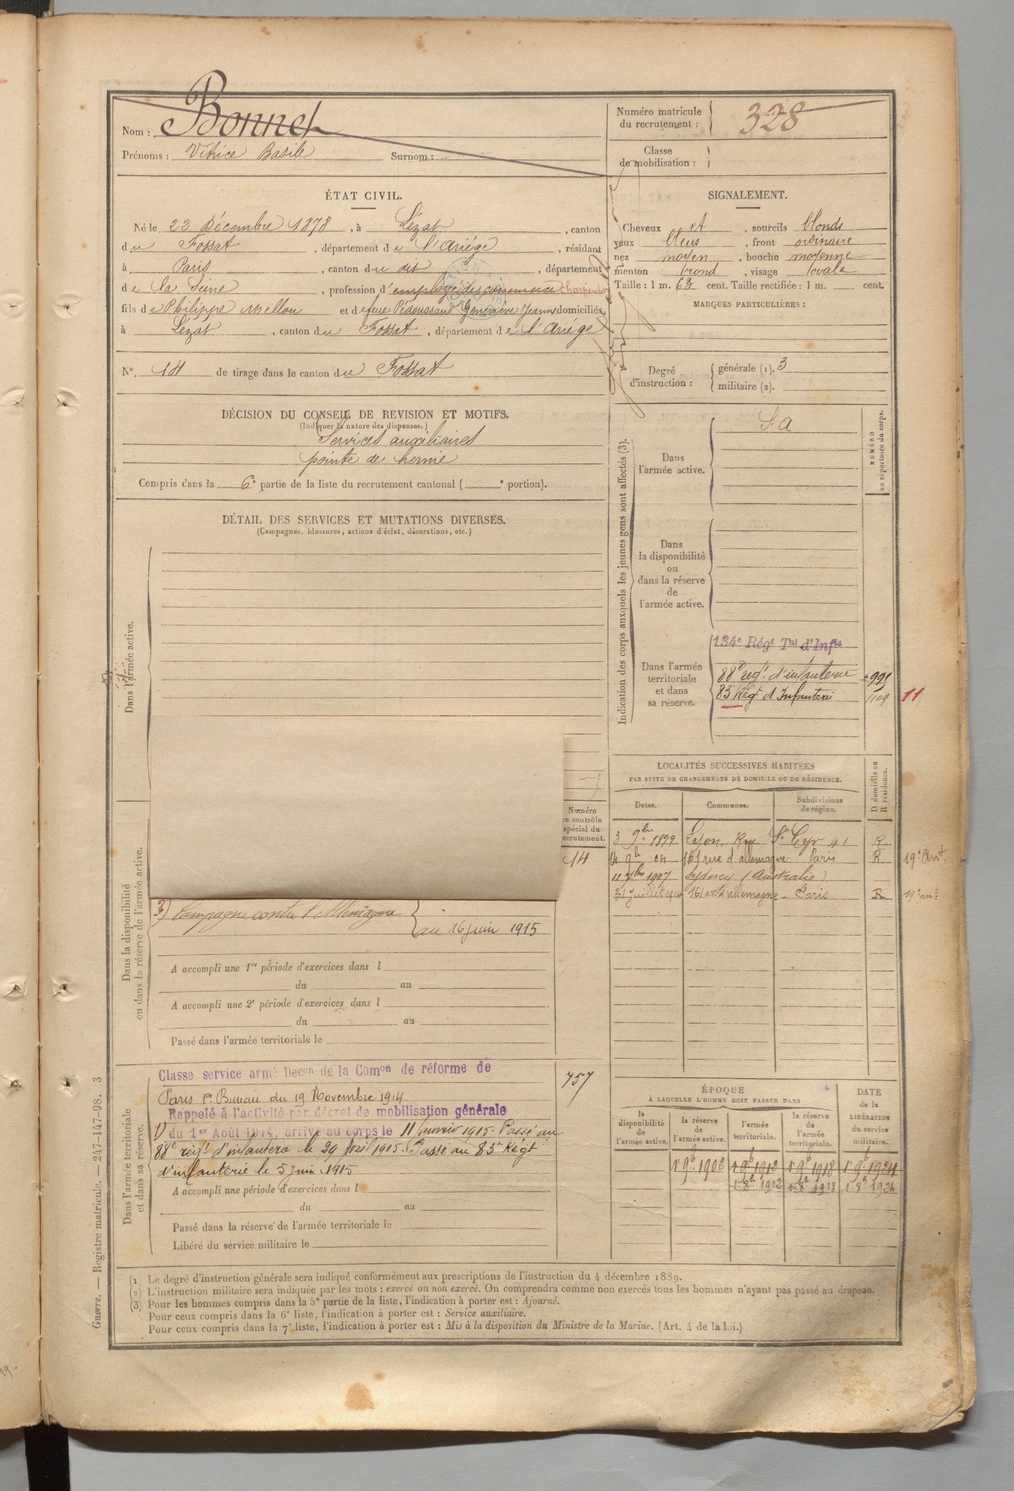 Nom : Bonnet
Prénoms : Vitrice Basile Surnom :
Numéro matricule du recrutement : 328
Classe de mobilisation :
ÉTAT CIVIL.
Né le 23 Décembre 1878, à Lézat, canton
du Fossat, département de l'Ariége, résidant
à Paris, canton du dit, département
de la Seine, profession d'employé de commerce charpentier
fils de Philippe Mellon et de feue Pédoussaud Geneviève Jeanne domiciliés
à Lézat, canton du Fossat, département de l'Ariége
N° 14 de tirage dans le canton du Fossat
SIGNALEMENT.
Cheveux et, sourcils blonds
yeux bleus, front ordinaire
nez moyen, bouche moyenne
menton rond, visage ovale
Taille : 1 m. 63 cent. Taille rectifiée : 1 m. cent.
MARQUES PARTICULIÈRES :
Degré d'instruction : générale (1). 3
militaire (2).
DÉCISION DU CONSEIL DE REVISION ET MOTIFS.
(Indiquer la nature des dispenses.)
Services auxiliaires
pointe de hernie
Compris dans la 6e partie de la liste du recrutement cantonal ( e portion).
DÉTAIL DES SERVICES ET MUTATIONS DIVERSES.
(Campagnes, blessures, actions d'éclat, décorations, etc.)
Dans l'armée active.
Indication des corps auxquels les jeunes gens sont affectés (3).
NUMÉRO au répertoire du corps.
Dans l'armée active. S A
Dans la disponibilité ou dans la réserve de l'armée active.
Dans l'armée territoriale et dans sa réserve.
134e Régt Tal d'Infie
88e regt d'infanterie
83 Régt d'Infanterie 11
LOCALITÉS SUCCESSIVES HABITÉES
PAR SUITE DE CHANGEMENTS DE DOMICILE OU DE RÉSIDENCE.
Dates. Communes. Subdivisions de région. D domicile ou R résidence.
3 9bre 1899 Lyon, Rue St Cyr 41 R
161 rue d'allemagne Paris R 19e Arrt
1907 Sydney (Australie)
31 Juillet 1914 161 rue d'allemagne - Paris R 19e arrt
Numéro au contrôle spécial du recrutement.
14
Dans la disponibilité ou dans la réserve de l'armée active.
3) Campagne contre l'Allemagne { au 16 juin 1915
A accompli une 1re période d'exercices dans l
du au
A accompli une 2e période d'exercices dans l
du au
Passé dans l'armée territoriale le
Dans l'armée territoriale et dans sa réserve.
757
Classe service armé Décon de la Comon de réforme de
Paris 1er Bureau du 19 Novembre 1914
Rappelé à l'activité par décret de mobilisation générale
1) du 1er Août 1914, arrivé au corps le 11 janvier 1915. Passé au
88e regt d'infanterie le 29 1915. Passé au 83 Régt
d'infanterie le 5 juin 1915
A accompli une période d'exercices dans l
du au
Passé dans la réserve de l'armée territoriale le
Libéré du service militaire le
ÉPOQUE
À LAQUELLE L'HOMME DOIT PASSER DANS
la disponibilité de l'armée active. la réserve de l'armée active. l'armée territoriale. la réserve de l'armée territoriale.
DATE de la LIBÉRATION du service militaire.
1er 9b 1902 1er 9b 1912 1er 9b 1918 1er 9b 1924
1er 8b 1912 1er 8b 1918 1er 8b 1924
(1) Le degré d'instruction générale sera indiqué conformément aux prescriptions de l'instruction du 4 décembre 1889.
(2) L'instruction militaire sera indiquée par les mots : exercé ou non exercé. On comprendra comme non exercés tous les hommes n'ayant pas passé au drapeau.
(3) Pour les hommes compris dans la 5e partie de la liste, l'indication à porter est : Ajourné.
Pour ceux compris dans la 6e liste, l'indication à porter est : Service auxiliaire.
Pour ceux compris dans la 7e liste, l'indication à porter est : Mis à la disposition du Ministre de la Marine. (Art. 4 de la loi.)
Guerre. — Registre matricule. — 247-147-98. 3